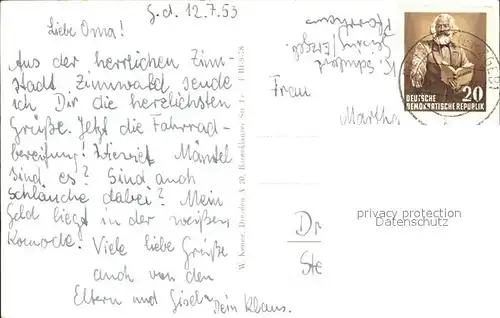 G.d. 12.7.53
Liebe Oma!
Aus der herrlichen Zinn-
stadt Zinnwald sende
ich Dir die herzlichsten
Grüße. Jetzt die Fahrrad-
bereifung! Wieviel Mäntel
sind es? Sind auch
Schläuche dabei? Mein
Geld liegt in der weißen
Komode. Viele liebe Grüße
auch von den
Eltern und Gisela
Dein Klaus.
Frau
Martha
Dr
Ste
20
DEUTSCHE
DEMOKRATISCHE REPUBLIK
privacy protection
Datenschutz